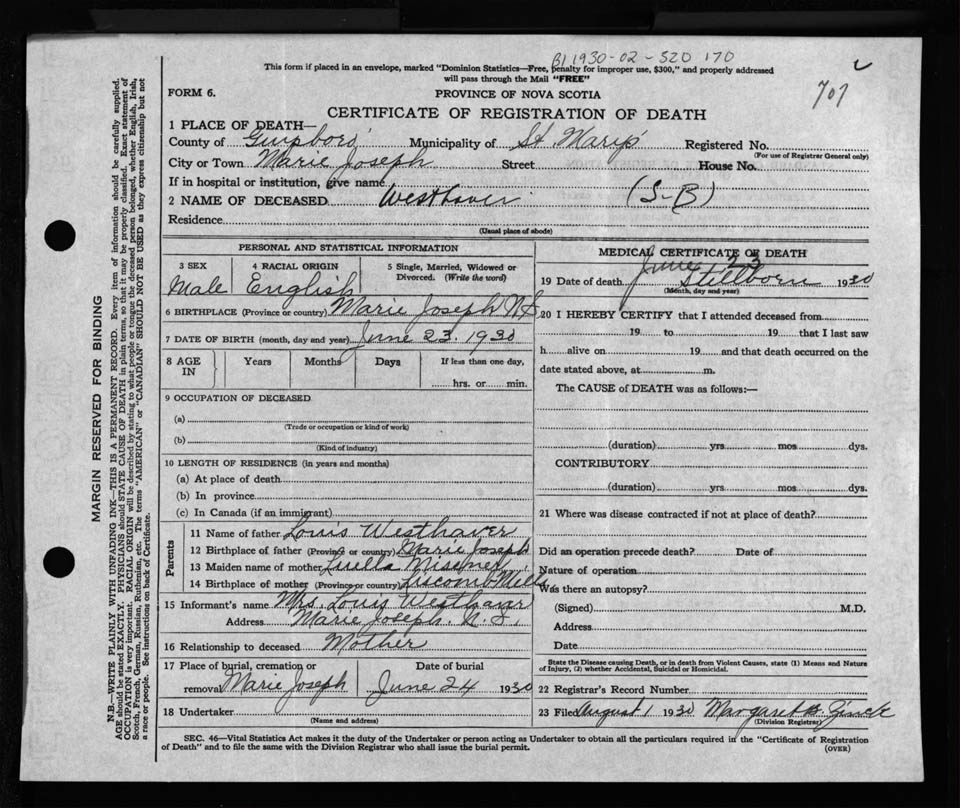 B) 1930-02-520 170
This form if placed in an envelope, marked "Dominion Statistics—Free, penalty for improper use, $300," and properly addressed
will pass through the Mail "FREE"
707
FORM 6.
PROVINCE OF NOVA SCOTIA
CERTIFICATE OF REGISTRATION OF DEATH
1 PLACE OF DEATH—
County of Guysboro Municipality of St. Mary's Registered No.
(For use of Registrar General only)
City or Town Marie Joseph Street House No.
If in hospital or institution, give name
2 NAME OF DECEASED Westhaver (S-B)
Residence
(Usual place of abode)
PERSONAL AND STATISTICAL INFORMATION
3 SEX 4 RACIAL ORIGIN 5 Single, Married, Widowed or
Divorced. (Write the word)
Male English
6 BIRTHPLACE (Province or country) Marie Joseph N.S.
7 DATE OF BIRTH (month, day and year) June 23. 1930
8 AGE Years Months Days If less than one day,
IN
hrs. or min.
9 OCCUPATION OF DECEASED
(a)
(Trade or occupation or kind of work)
(b)
(Kind of industry)
10 LENGTH OF RESIDENCE (in years and months)
(a) At place of death
(b) In province
(c) In Canada (if an immigrant)
Parents
11 Name of father Louis Westhaver
12 Birthplace of father (Province or country) Marie Joseph
13 Maiden name of mother Luella Misener
14 Birthplace of mother (Province or country) Liscomb Mills
15 Informant's name Mrs. Louis Westhaver
Address Marie Joseph. N.S.
16 Relationship to deceased Mother
17 Place of burial, cremation or Date of burial
removal Marie Joseph June 24 1930
18 Undertaker
(Name and address)
MEDICAL CERTIFICATE OF DEATH
June 23
19 Date of death Stillborn 1930
(Month, day and year)
20 I HEREBY CERTIFY that I attended deceased from
19 to 19 that I last saw
h alive on 19 and that death occurred on the
date stated above, at m.
The CAUSE of DEATH was as follows:—
(duration) yrs mos dys.
CONTRIBUTORY
(duration) yrs. mos. dys.
21 Where was disease contracted if not at place of death?
Did an operation precede death? Date of
Nature of operation
Was there an autopsy?
(Signed) M.D.
Address
Date
State the Disease causing Death, or in death from Violent Causes, state (1) Means and Nature
of Injury, (2) whether Accidental, Suicidal or Homicidal.
22 Registrar's Record Number
23 Filed August 1 1930 Margaret B. Zinck
(Division Registrar)
SEC. 46—Vital Statistics Act makes it the duty of the Undertaker or person acting as Undertaker to obtain all the particulars required in the "Certificate of Registration
of Death" and to file the same with the Division Registrar who shall issue the burial permit.
(OVER)
MARGIN RESERVED FOR BINDING
N.B.—WRITE PLAINLY WITH UNFADING INK—THIS IS A PERMANENT RECORD. Every item of information should be carefully supplied.
AGE should be stated EXACTLY. PHYSICIANS should STATE CAUSE OF DEATH in plain terms, so that it may be properly classified. Exact statement of
OCCUPATION is very important. RACIAL ORIGIN will be described by stating to what people or tongue the deceased person belonged, whether English, Irish,
Scotch, French, German, Russian, Ruthenian, etc. The terms "AMERICAN" or "CANADIAN" SHOULD NOT BE USED as they express citizenship but not
a race or people. See instructions on back of Certificate.